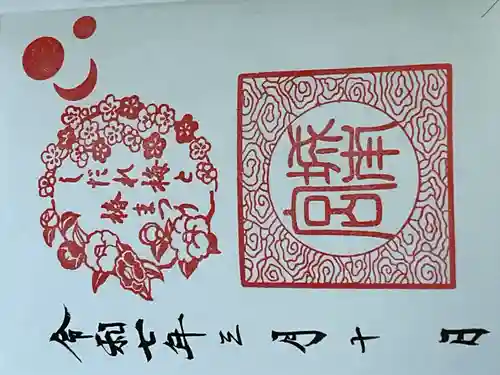 しだれ梅と
椿まつり
城南宮
令和七年三月十日